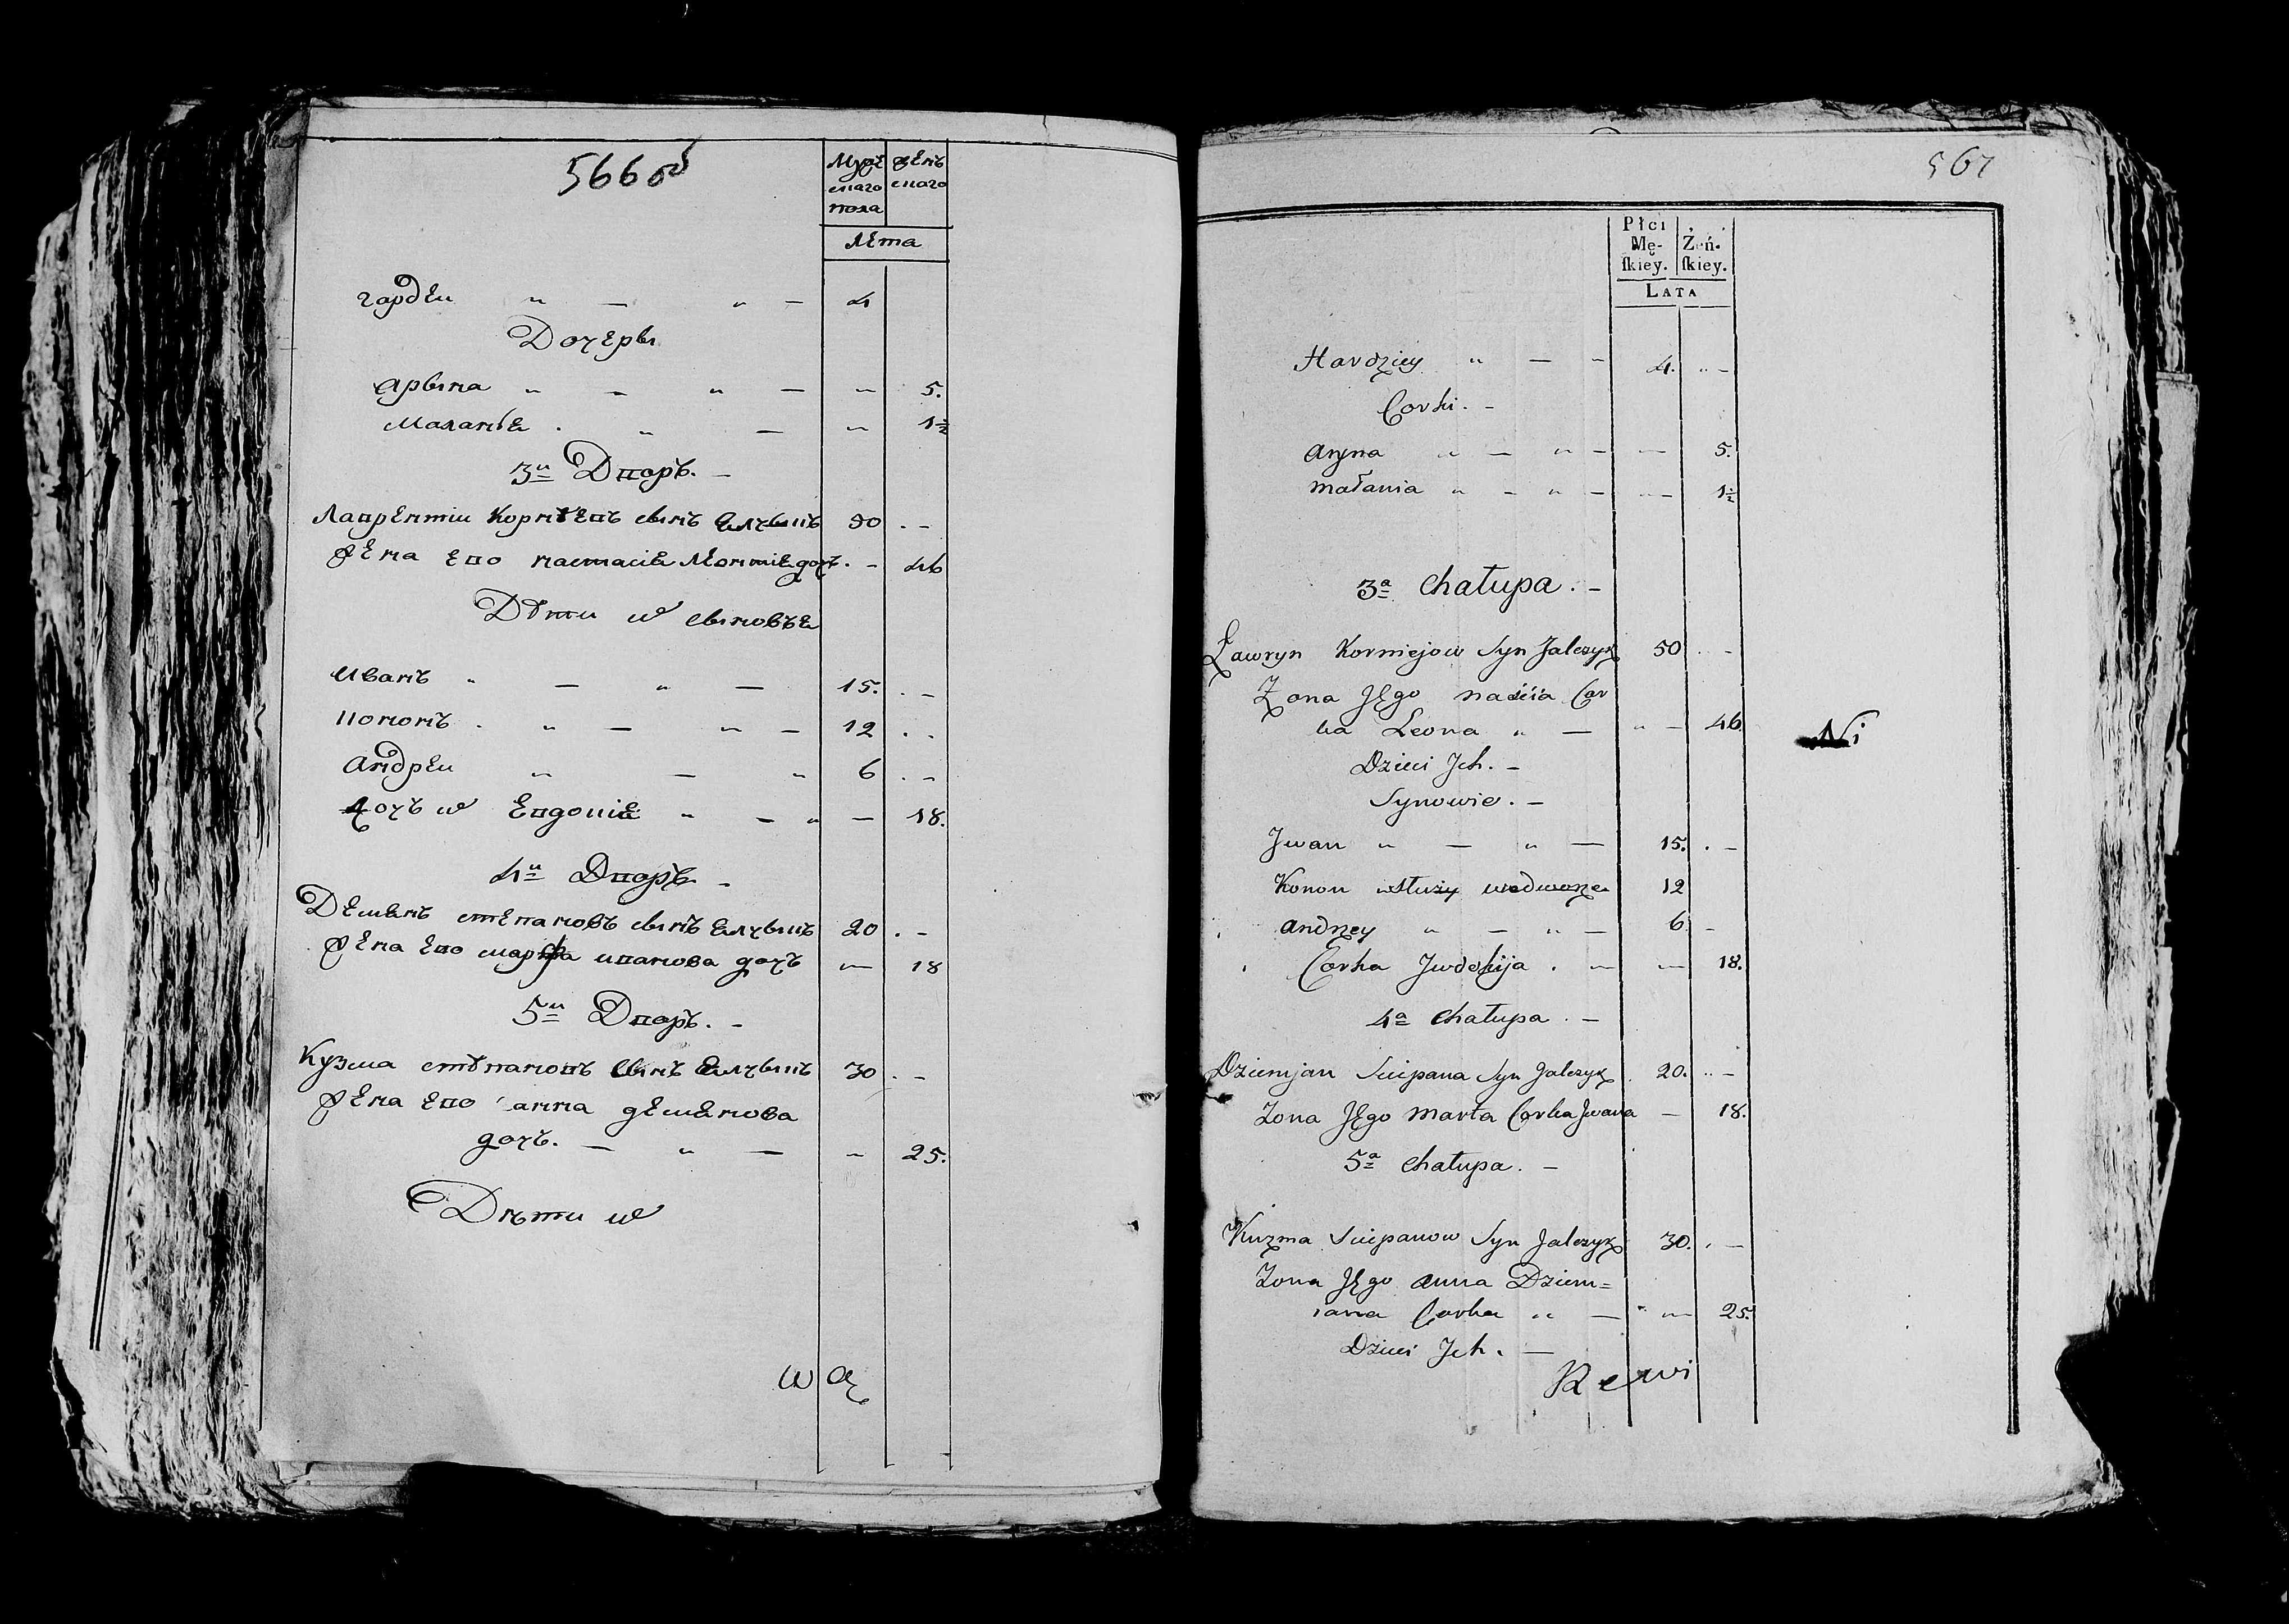 566 об
Муже женъ
скаго скаго
пола
Лета
гардеи " — " — 4
Дочеры
арына " — " — " 5.
маланіа . " — " 1½
3й Дворъ. —
Лаврентіи Корнѣевъ сынъ Ялчыкъ 50 . —
жена ево настасіа Леонтіа дочъ . — 46
Дѣти ихъ сыновъа
иванъ " — " — 15. . —
кононъ . " — " — 12 . .
андреи " — " 6 . —
дочъ ихъ Евдокіа " — " — 18.
4й Дворъ —
Демянъ степановъ сынъ Ялчыкъ 20 . —
жена ево марфа иванова дочъ — 18
5й Дворъ. —
Кузма стѣпановъ сынъ Ялчыкъ 30 . —
жена ево анна демянова
дочъ. — " — " 25.
Дѣти ихъ
567
Płci
Mę- Żeń-
ſkiey. ſkiey.
LATA
Hardziey " — " 4. " —
Corki. —
aryna " — " — — 5.
małania " — " — — 1½
3a Chałupa. —
Ławryn Korniejow Syn Jalczyk 50 . —
Żona Jego naścia Cor
ka Leona " — " — 46.
Ni
Dzieci Jch. —
Synowie. —
Jwan " — " — 15. . —
Konon wsłuży wedworze 12
andrzey " — " — 6 —
Corka Jwdokija . — — 18.
4a Chałupa . —
Dziemjan Sciepana Syn Jalczyk 20. " —
Zona Jego marta Corka Jwana — 18.
5a Chałupa. —
Kuzma Sciepanow Syn Jalczyk 30. . —
Zona Jego anna Dziem=
iana Corka " — " — 25.
Dzieci Jch. —
Rewi